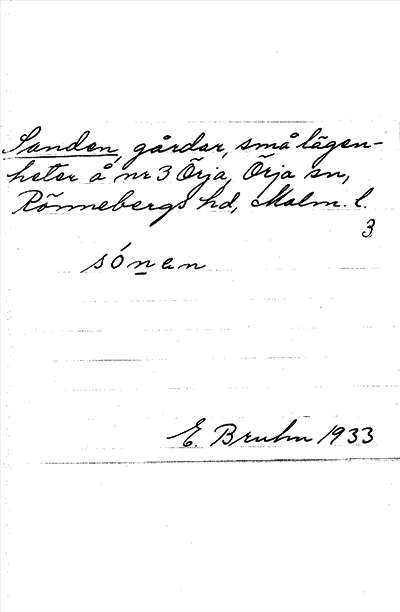 Sanden, gårdar, små lägen-
heter å nr 3 Örja, Örja sn,
Rönnebergs hd, Malm. l.
3
sónen
E. Bruhn 1933